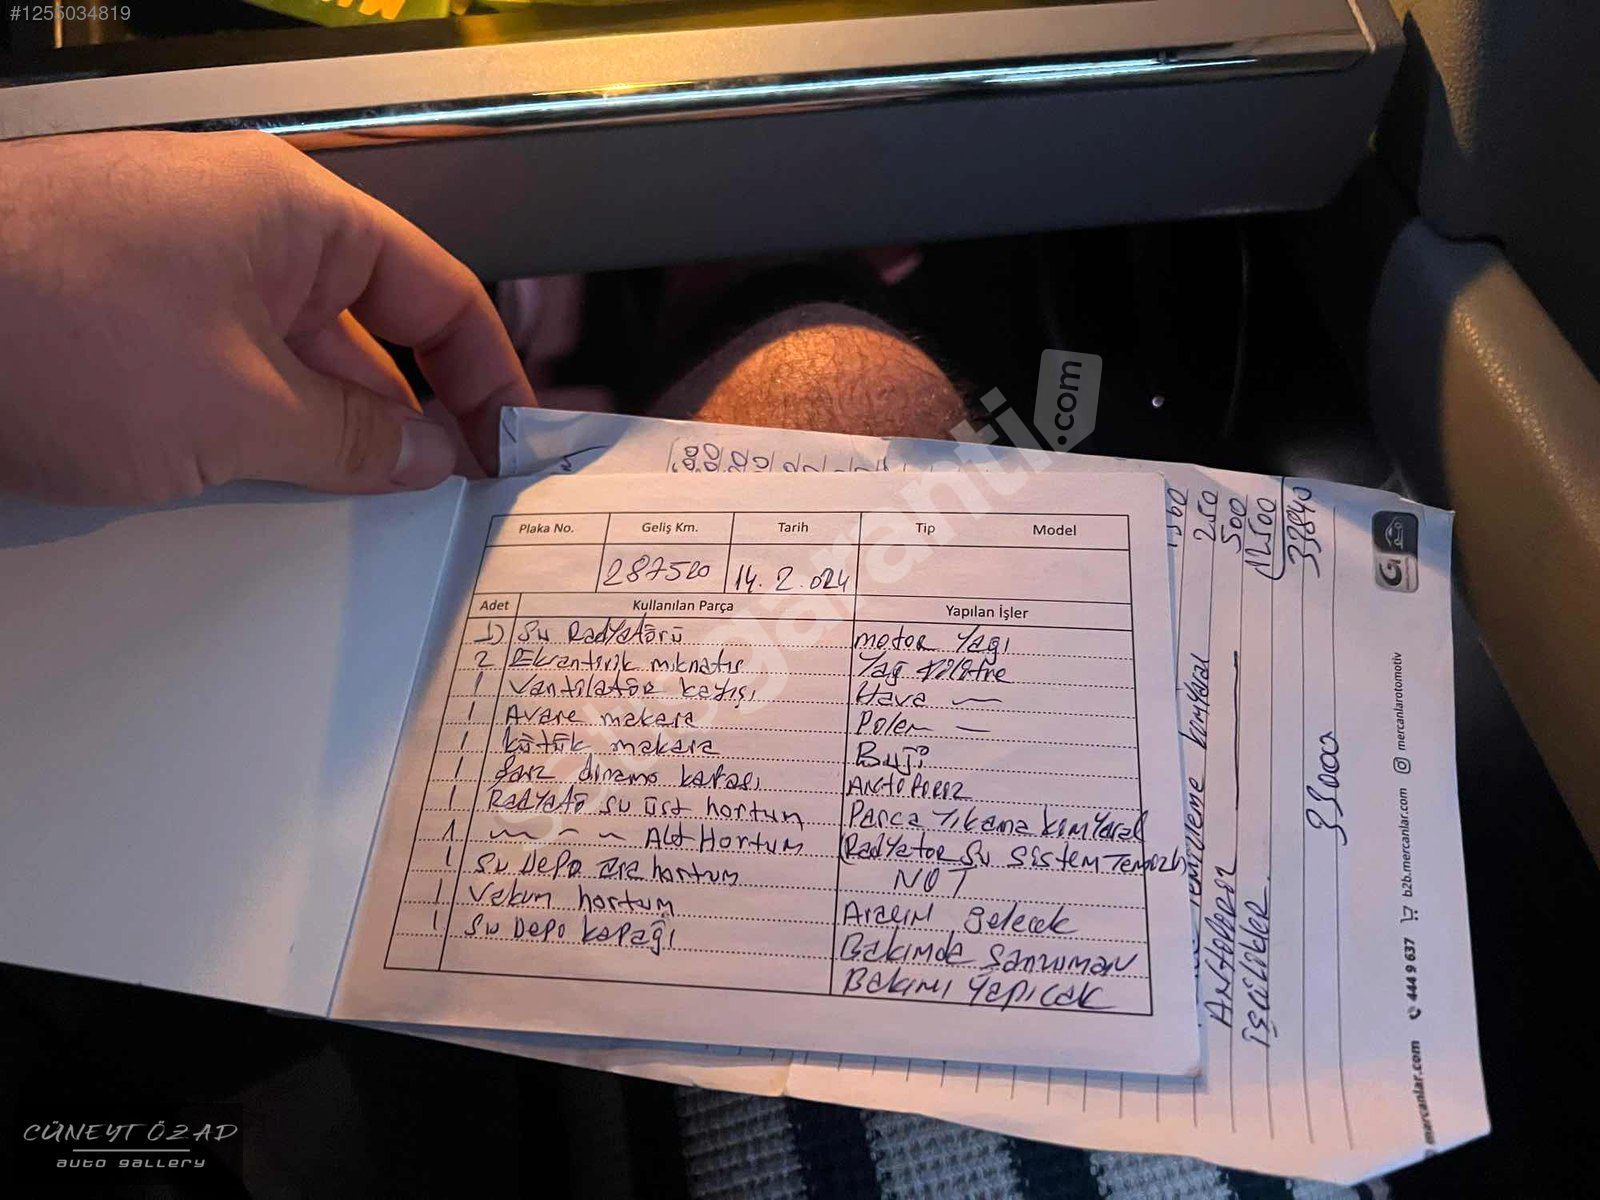 #1255034819
sarıgaranti.com
Plaka No. Geliş Km. Tarih Tip Model
287520 14.2.024
Adet Kullanılan Parça Yapılan İşler
1) Su Radyatörü motor Yağı
2 Ekrantirik mıknatıs Yağ filitre
1 Vantilatör kayışı Hava —
1 Avare makara Polen —
1 kütük makara Buji
1 Şarz dinamo kafası Antifiriz
1 Radyatö su üst hortum Parca Yıkama kimyasal
1 — — — Alt Hortum Radyator su sistem Temizli
1 Su Depo ara hortum NOT
1 Vakum hortum Aracın gelecek
1 Su Depo kapağı Bakımda Şanzuman
Bakımı Yapıcak
Temizleme kimyasal
Antiferiz
işcilikler
1360
250
500
12500
33840
33000
G
mercanlar.com 444 9 637 b2b.mercanlar.com mercanlarotomotiv
CÜNEYT ÖZAD
auto gallery